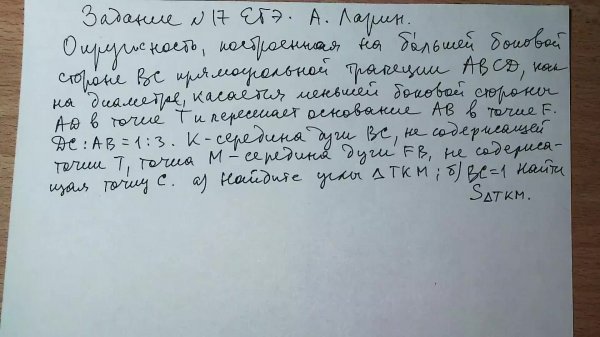 Задание №17 ЕГЭ. А. Ларин.
Окружность, построенная на большей боковой
стороне BC прямоугольной трапеции ABCD, как
на диаметре, касается меньшей боковой стороны
AD в точке T и пересекает основание AB в точке F.
DC:AB=1:3. K-середина дуги BC, не содержащей
точки T, точка M-середина дуги FB, не содержа-
щая точку C. а) Найдите углы ΔTKM; б) BC=1 Найти
SΔTKM.